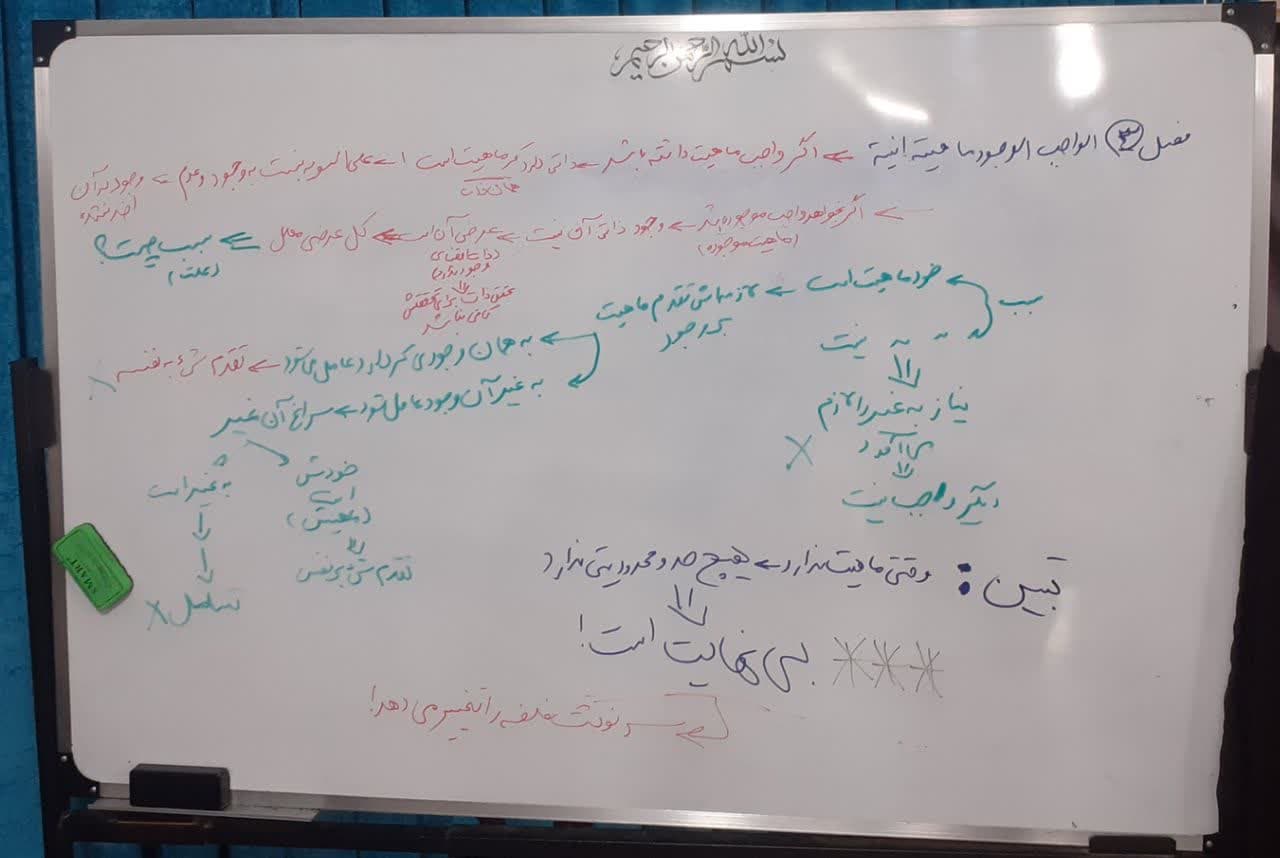 بسم الله الرحمن الرحیم
فصل ③ الواجب الوجود ماهیته إنیته ← اگر واجب ماهیت داشته باشد ← ذاتی دارد که ماهیت است ← علی السویه نسبت به وجود و عدم ← وجود در آن
اخذ نشده
همان ذات
← اگر بخواهد واجب موجود باشد ← وجود ذاتی آن نیست ← عرضی آن است ← کل عرضی معلل ← سبب چیست؟
(ماهیت موجوده)
(علت)
ذات تقاضای
وجود ندارد
تحقق ذات برای تحققش
کافی نباشد
سبب
خود ماهیت است ← لازمه‌اش تقدم ماهیت
بر وجود
" " " نیست
به همان وجودی که دارد عامل می‌شود ← تقدم شیء به نفسه ×
به غیر آن وجود عامل شود ← سراغ آن غیر
نیاز به غیر را لازم
می‌آورد
×
دیگر واجب نیست
خودش
است
تقدم شیء بر نفس
به غیر است
تسلسل ×
تبیین : وقتی ماهیت ندارد ← هیچ حد و محدودیتی ندارد
*** بی نهایت است!
سرنوشت فلسفه را تغییر می دهد!
SMART